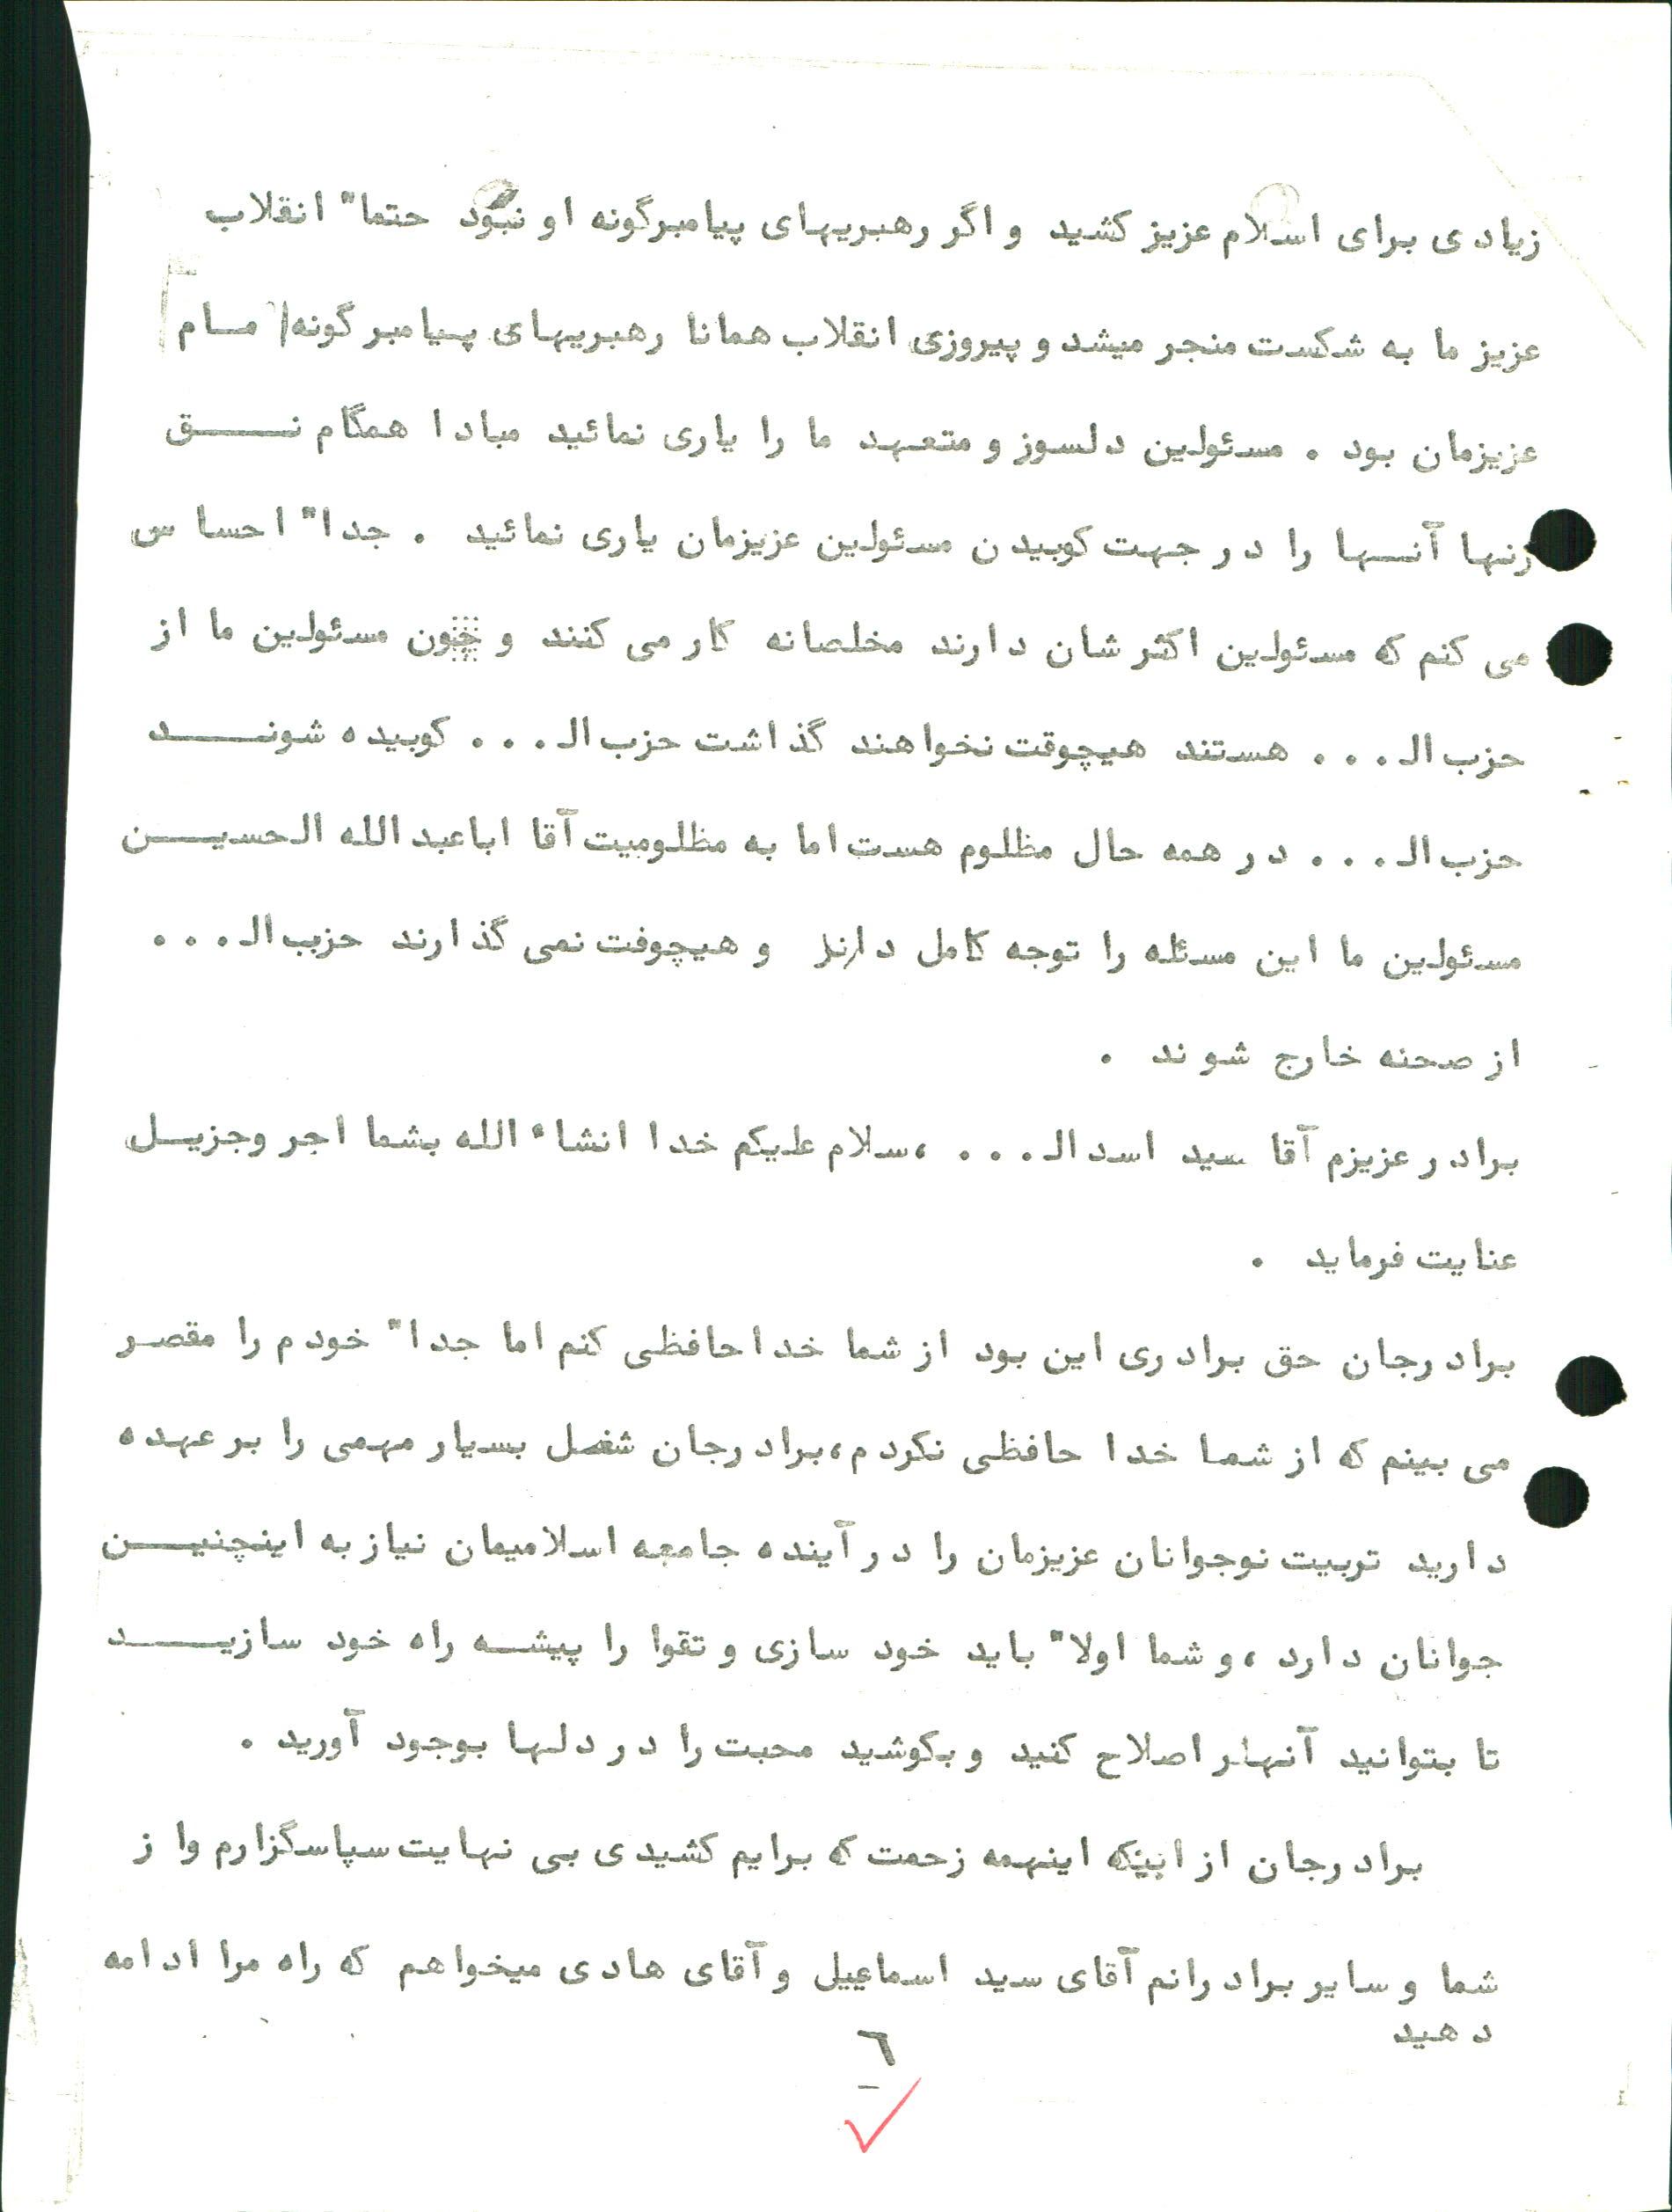 زیادی برای اسلام عزیز کشید و اگر رهبریهای پیامبرگونه او نبود حتما" انقلاب
عزیز ما به شکست منجر میشد و پیروزی انقلاب همانا رهبریهای پیامبر گونه امام
عزیزمان بود . مسئولین دلسوز و متعهد ما را یاری نمائید مبادا همگام نق
زنها آنها را در جهت کوبیدن مسئولین عزیزمان یاری نمائید . جدا" احساس
می کنم که مسئولین اکثر شان دارند مخلصانه کار می کنند و چون مسئولین ما از
حزب ال... هستند هیچوقت نخواهند گذاشت حزب ال... کوبیده شوند
حزب ال... در همه حال مظلوم هست اما به مظلومیت آقا اباعبدالله الحسین
مسئولین ما این مسئله را توجه کامل دارند و هیچوقت نمی گذارند حزب ال...
از صحنه خارج شوند .
برادر عزیزم آقا سید اسدال... ،سلام علیکم خدا انشاء الله بشما اجر وجزیل
عنایت فرماید .
برادرجان حق برادری این بود از شما خداحافظی کنم اما جدا" خودم را مقصر
می بینم که از شما خدا حافظی نکردم ،برادرجان شغل بسیار مهمی را بر عهده
دارید تربیت نوجوانان عزیزمان را در آینده جامعه اسلامیمان نیاز به اینچنین
جوانان دارد ، و شما اولا" باید خود سازی و تقوا را پیشه راه خود سازید
تا بتوانید آنهار اصلاح کنید و بکوشید محبت را در دلها بوجود آورید .
برادرجان از اینکه اینهمه زحمت که برایم کشیدی بی نهایت سپاسگزارم واز
شما و سایر برادرانم آقای سید اسماعیل و آقای هادی میخواهم که راه مرا ادامه
دهید
٦